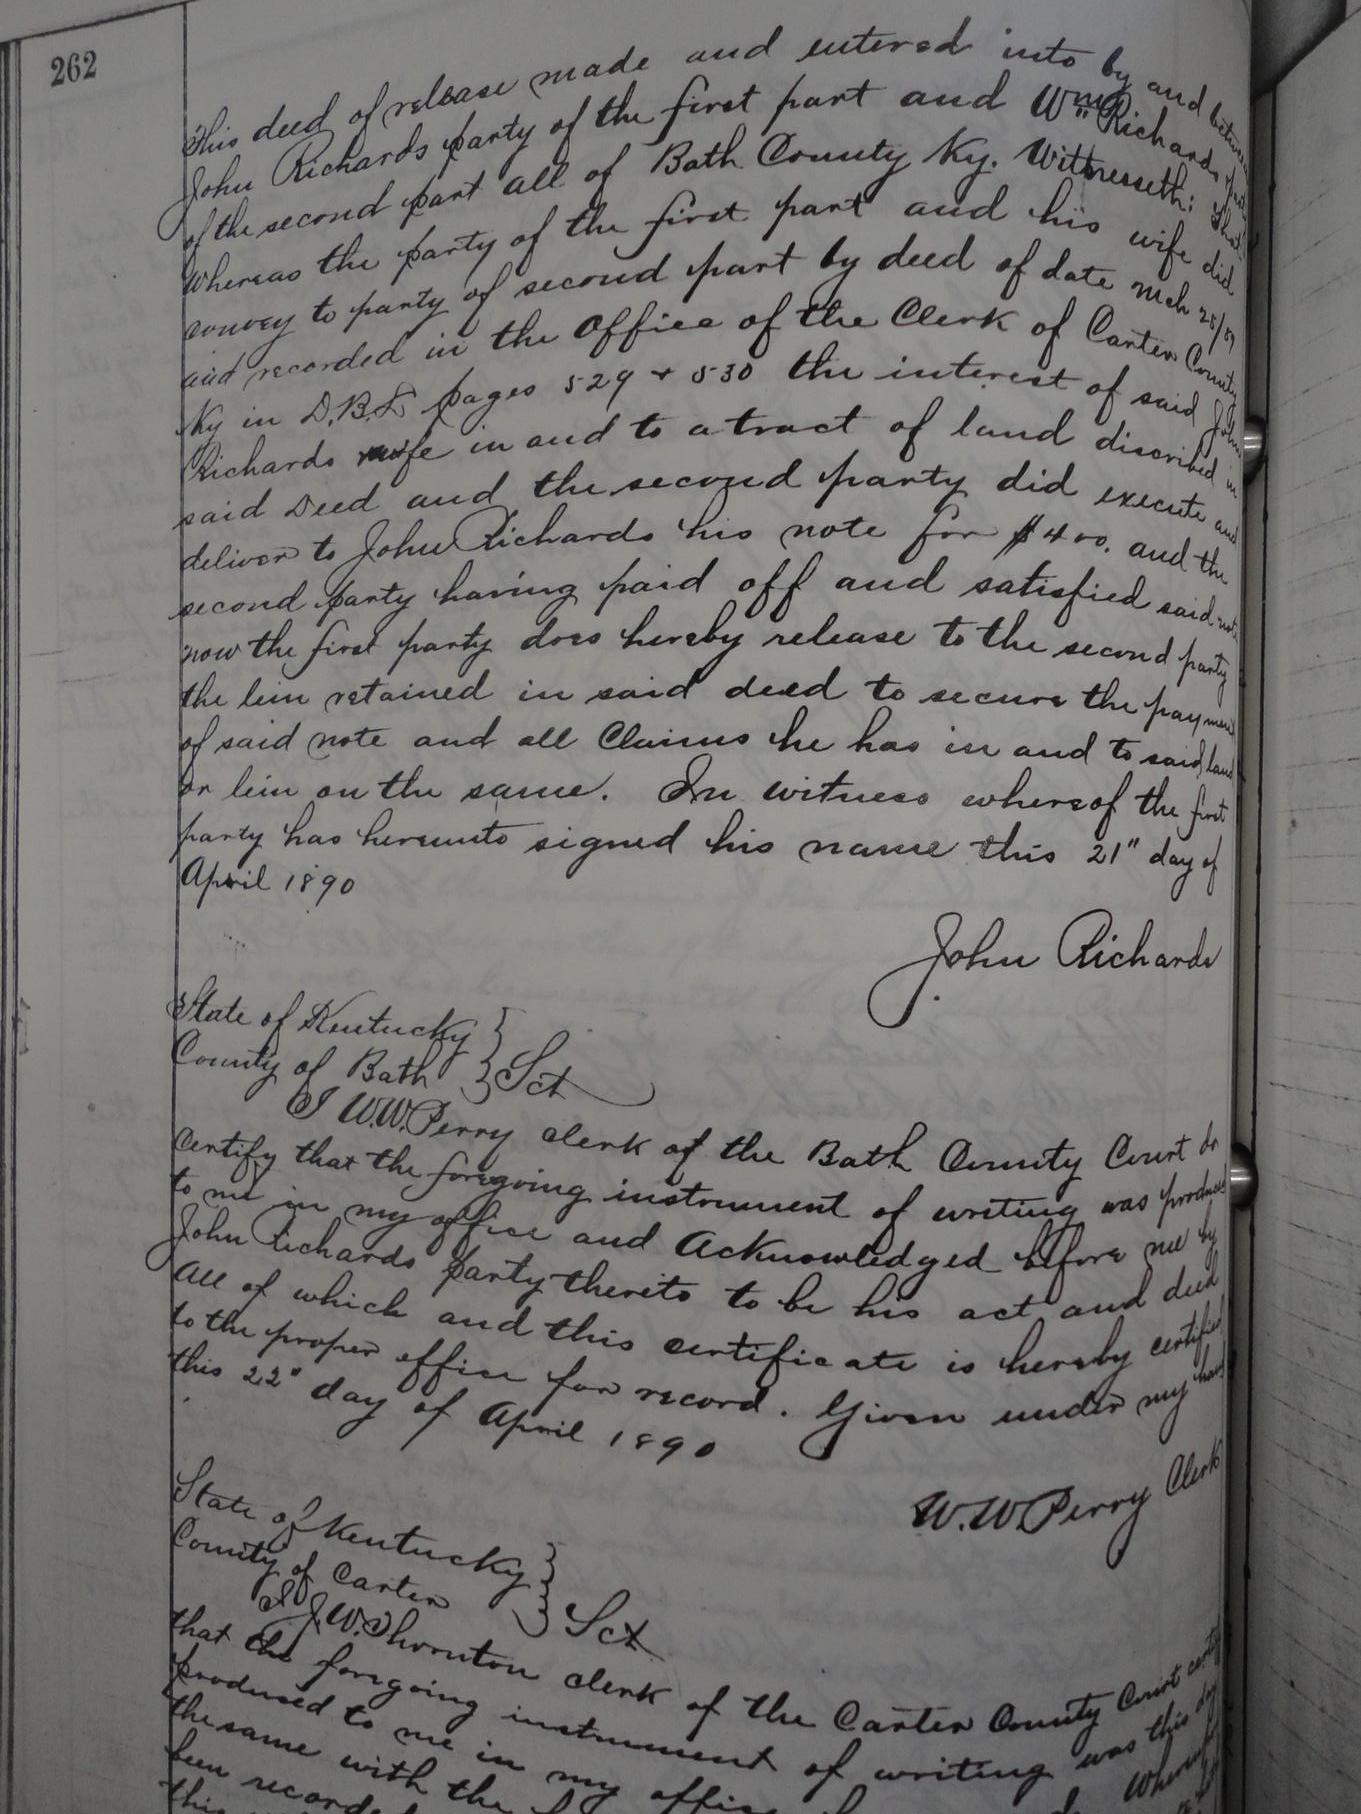 262
This deed of release made and entered into by and between
John Richards party of the first part and Wm R. Richards part
of the second part all of Bath County Ky. Witnesseth: That
whereas the party of the first part and his wife did
convey to party of second part by deed of date Mch 25/89
and recorded in the Office of the Clerk of Carter County
Ky in D.B. pages 529 + 530 the interest of said John
Richards wife in and to a tract of land discribed in
said Deed and the second party did execute and
deliver to John Richards his note for $400. and the
second party having paid off and satisfied said note
now the first party does hereby release to the second party
the lein retained in said deed to secure the payment
of said note and all Claims he has in and to said land
or lein on the same. In witness whereof the first
party has hereunto signed his name this 21" day of
April 1890
John Richards
State of Kentucky }
County of Bath } Sct
I W.W. Perry clerk of the Bath County Court do
certify that the foregoing instrument of writing was produced
to me in my office and Acknowledged before me by
John Richards party thereto to be his act and deed
All of which and this certificate is hereby certified
to the proper office for record. Given under my hand
this 22" day of April 1890
W.W. Perry Clerk
State of Kentucky }
County of Carter } Sct
I J.W. Thornton clerk of the Carter County Court certify
that the foregoing instrument of writing was this day
produced to me in my office
the same with the
been recorded
this